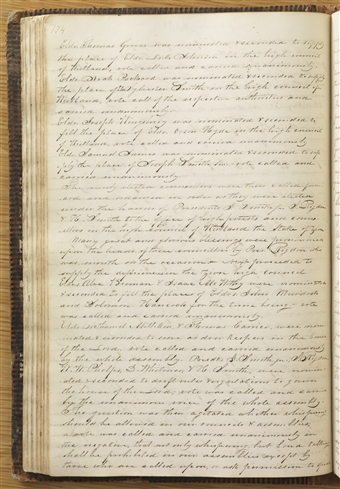 Elder Thomas Grover was nominated & seconded to supply
the place of Elder Luke Johnson in the high council
of Kirtland, vote called and carried unanimously.
Elder Noah Packard was nominated & seconded to supply
the place of Sylvester Smith in the high council of
Kirtland, vote call of the respective authorities and
carried unanimously.
Elder Joseph Kingsbury was nominated & seconded to
fill the place of Elder Orson Hyde in the high council
of Kirtland, vote called and carried unanimously
Elder Samuel James was nominated & seconded to sup-
ply the place of Joseph Smith Sen. vote called and
carried unanimously.
The newly elected counsellors were then called for-
ward and ordained in order as they were elected
under the hands of Presidents
& H. Smith to the office of high priests and coun-
sellors in the high council of Kirtland the State of
Many great and glorious blessings were pronounced
upon the heads of these councillors by Pres.
was mouth on the occasion Next proceeded to
supply the deficiencies in the Zion high council
Elders Alva Beeman & Isaac McWithy were nominated
& seconded to fill the places of Elders John Murdock
and Solomon Hancock for the time being - vote
was called and carried unanimously.
Elders Nathaniel Milliken & Thomas Carrico, were nom-
inated & seconded to serve as door keepers in the house
of the Lord. vote called and carried unanimously
by the whole assembly. Presdts J. Smith jr.
W. W. Phelps D. Whitmer & H. Smith, were nomin-
ated & seconded to draft rules & regulations to govern
the house of the Lord, vote was called and carri-
by the unanimous voice of the whole assembly
The question was then agitated whether whispering
should be allowed in our councils & assemblies
a vote was called and carried unanimously in
the negative, that not only whispering but loud talking
shall be prohibited in our assemblies except by
those who are called upon, or ask permission to